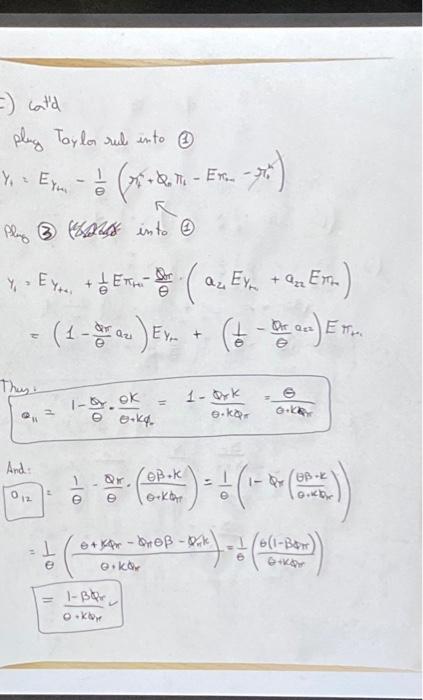 c) cont'd
plug Taylor rule into ①
Y_t = E y_{t+1} - 1/θ (r_t^n + Φ_π π_t - E π_{t+1} - r_t^n)
Plug ③ into ①
Y_t = E y_{t+1} + 1/θ E π_{t+1} - Φ_π/θ · (a_{21} E y_{t+1} + a_{22} E π_{t+1})
= (1 - Φ_π/θ a_{21}) E y_{t+1} + (1/θ - Φ_π/θ a_{22}) E π_{t+1}
Thus:
a_{11} = 1 - Φ_π/θ · θK/θ+KΦ_π = 1 - Φ_π K/θ+KΦ_π = θ/θ+KΦ_π
And:
a_{12} = 1/θ - Φ_π/θ · (θβ+K/θ+KΦ_π) = 1/θ (1 - Φ_π (θβ+K/θ+KΦ_π))
= 1/θ (θ + KΦ_π - Φ_π θβ - Φ_π K/θ+KΦ_π) = 1/θ (θ(1-βΦ_π)/θ+KΦ_π)
= 1-βΦ_π/θ+KΦ_π ✓